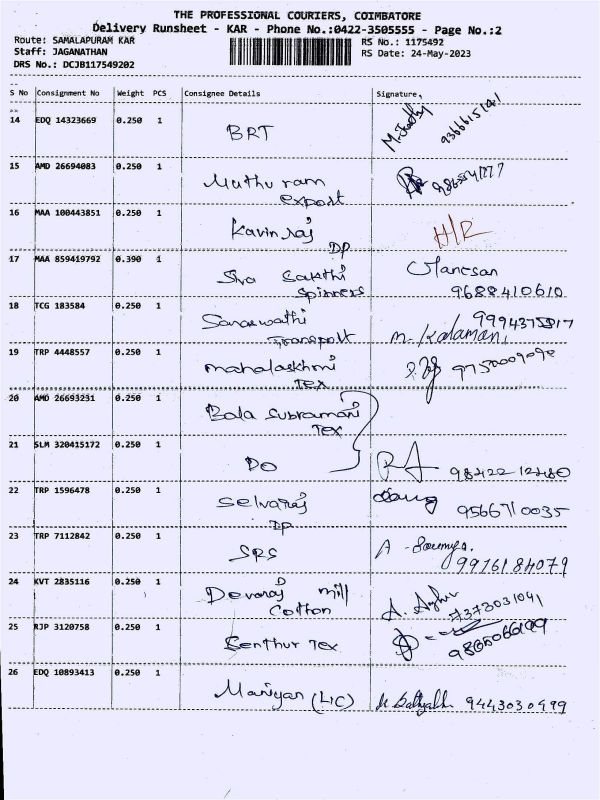 THE PROFESSIONAL COURIERS, COIMBATORE
Delivery Runsheet - KAR - Phone No.:0422-3505555 - Page No.:2
Route: SAMALAPURAM KAR
RS No.: 1175492
Staff: JAGANATHAN
RS Date: 24-May-2023
DRS No.: DCJB117549202
S No Consignment No Weight PCS Consignee Details Signature,
14 EDQ 14323669 0.250 1
BRT
15 AMD 26694083 0.250 1
Muthu ram
export
16 MAA 100443851 0.250 1
Kavin raj
DP
H/R
17 MAA 859419792 0.390 1
Siva Sakthi
Spinners
9688410610
18 TCG 183584 0.250 1
Saraswathi
Transport
M. Kalamani
19 TRP 4448557 0.250 1
mahalaskhmi
Tex
20 AMD 26693231 0.250 1
Bala Subramani
Tex
21 SLM 320415172 0.250 1
DO
22 TRP 1596478 0.250 1
Selvaraj
DP
9566710035
23 TRP 7112842 0.250 1
SRS
24 KVT 2835116 0.250 1
Devaraj mill
Cotton
7373031041
25 RJP 3120758 0.250 1
Senthur Tex
26 EDQ 10893413 0.250 1
Maniyan (LIC)
9443030499